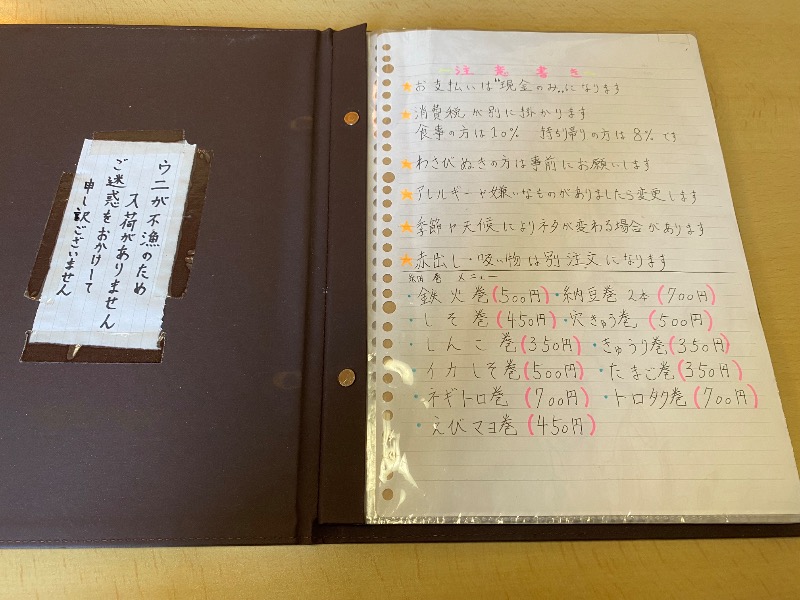 ウニが不漁のため
入荷がありません
ご迷惑をおかけして
申し訳ございません
注意書き
★お支払いは"現金のみ"になります
★消費税が別に掛かります
食事の方は10% 持ち帰りの方は8%です
★わさびぬきの方は事前にお願いします
★アレルギーや嫌いなものがありましたら変更します
★季節や天候によりネタが変わる場合があります
★赤出し・吸い物は別注文になります
メニュー
・鉄火巻(500円)・納豆巻2本(700円)
・しそ巻(450円)・穴きゅう巻(500円)
・しんこ巻(350円)・きゅうり巻(350円)
・イカしそ巻(500円)・たまご巻(350円)
・ネギトロ巻(700円)・トロタク巻(700円)
・えびマヨ巻(450円)